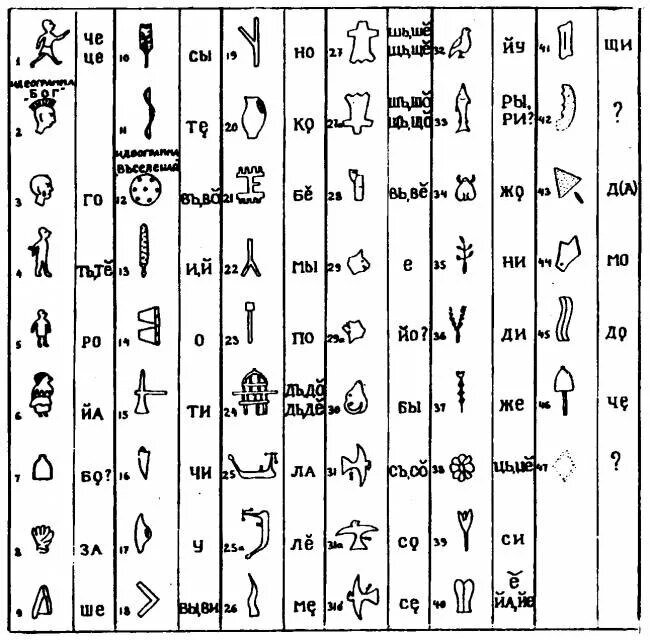 1 ЧЕ
ЦЕ
10 СЫ
19 НО
27 ШЬ,ШӖ
ЩЬ,ЩӖ
32 ЙУ
41 ЩИ
ИДЕОГРАММА
"БОГ"
2
11 ТЕ̨
20 КО̨
27а ШЪ,ШО̆
ЩЪ,ЩО̆
33 РЫ,
РИ?
42 ?
3 ГО
ИДЕОГРАММА
ВЪСЕЛЕНАЙ
12 ВЪ,ВО̆
21 БӖ
28 ВЬ,ВӖ
34 ЖО̨
43 Д(А)
4 ТЬ,ТӖ
13 И,Й
22 МЫ
29 Е
35 НИ
44 МО
5 РО
14 О
23 ПО
29а ЙО?
36 ДИ
45 ДО̨
6 ЙА
15 ТИ
24 ДЪ,ДО̆
ДЬ,ДӖ
30 БЫ
37 ЖЕ
46 ЧЕ̨
7 БО̨?
16 ЧИ
25 ЛА
31 СЪ,СО̆
38 ЦЬ,ЦӖ
47 ?
8 ЗА
17 У
25а ЛӖ
31а СО̨
39 СИ
9 ШЕ
18 ВЫ,ВИ
26 МЕ̨
31б СЕ̨
40 Ӗ
ЙА,ЙЕ